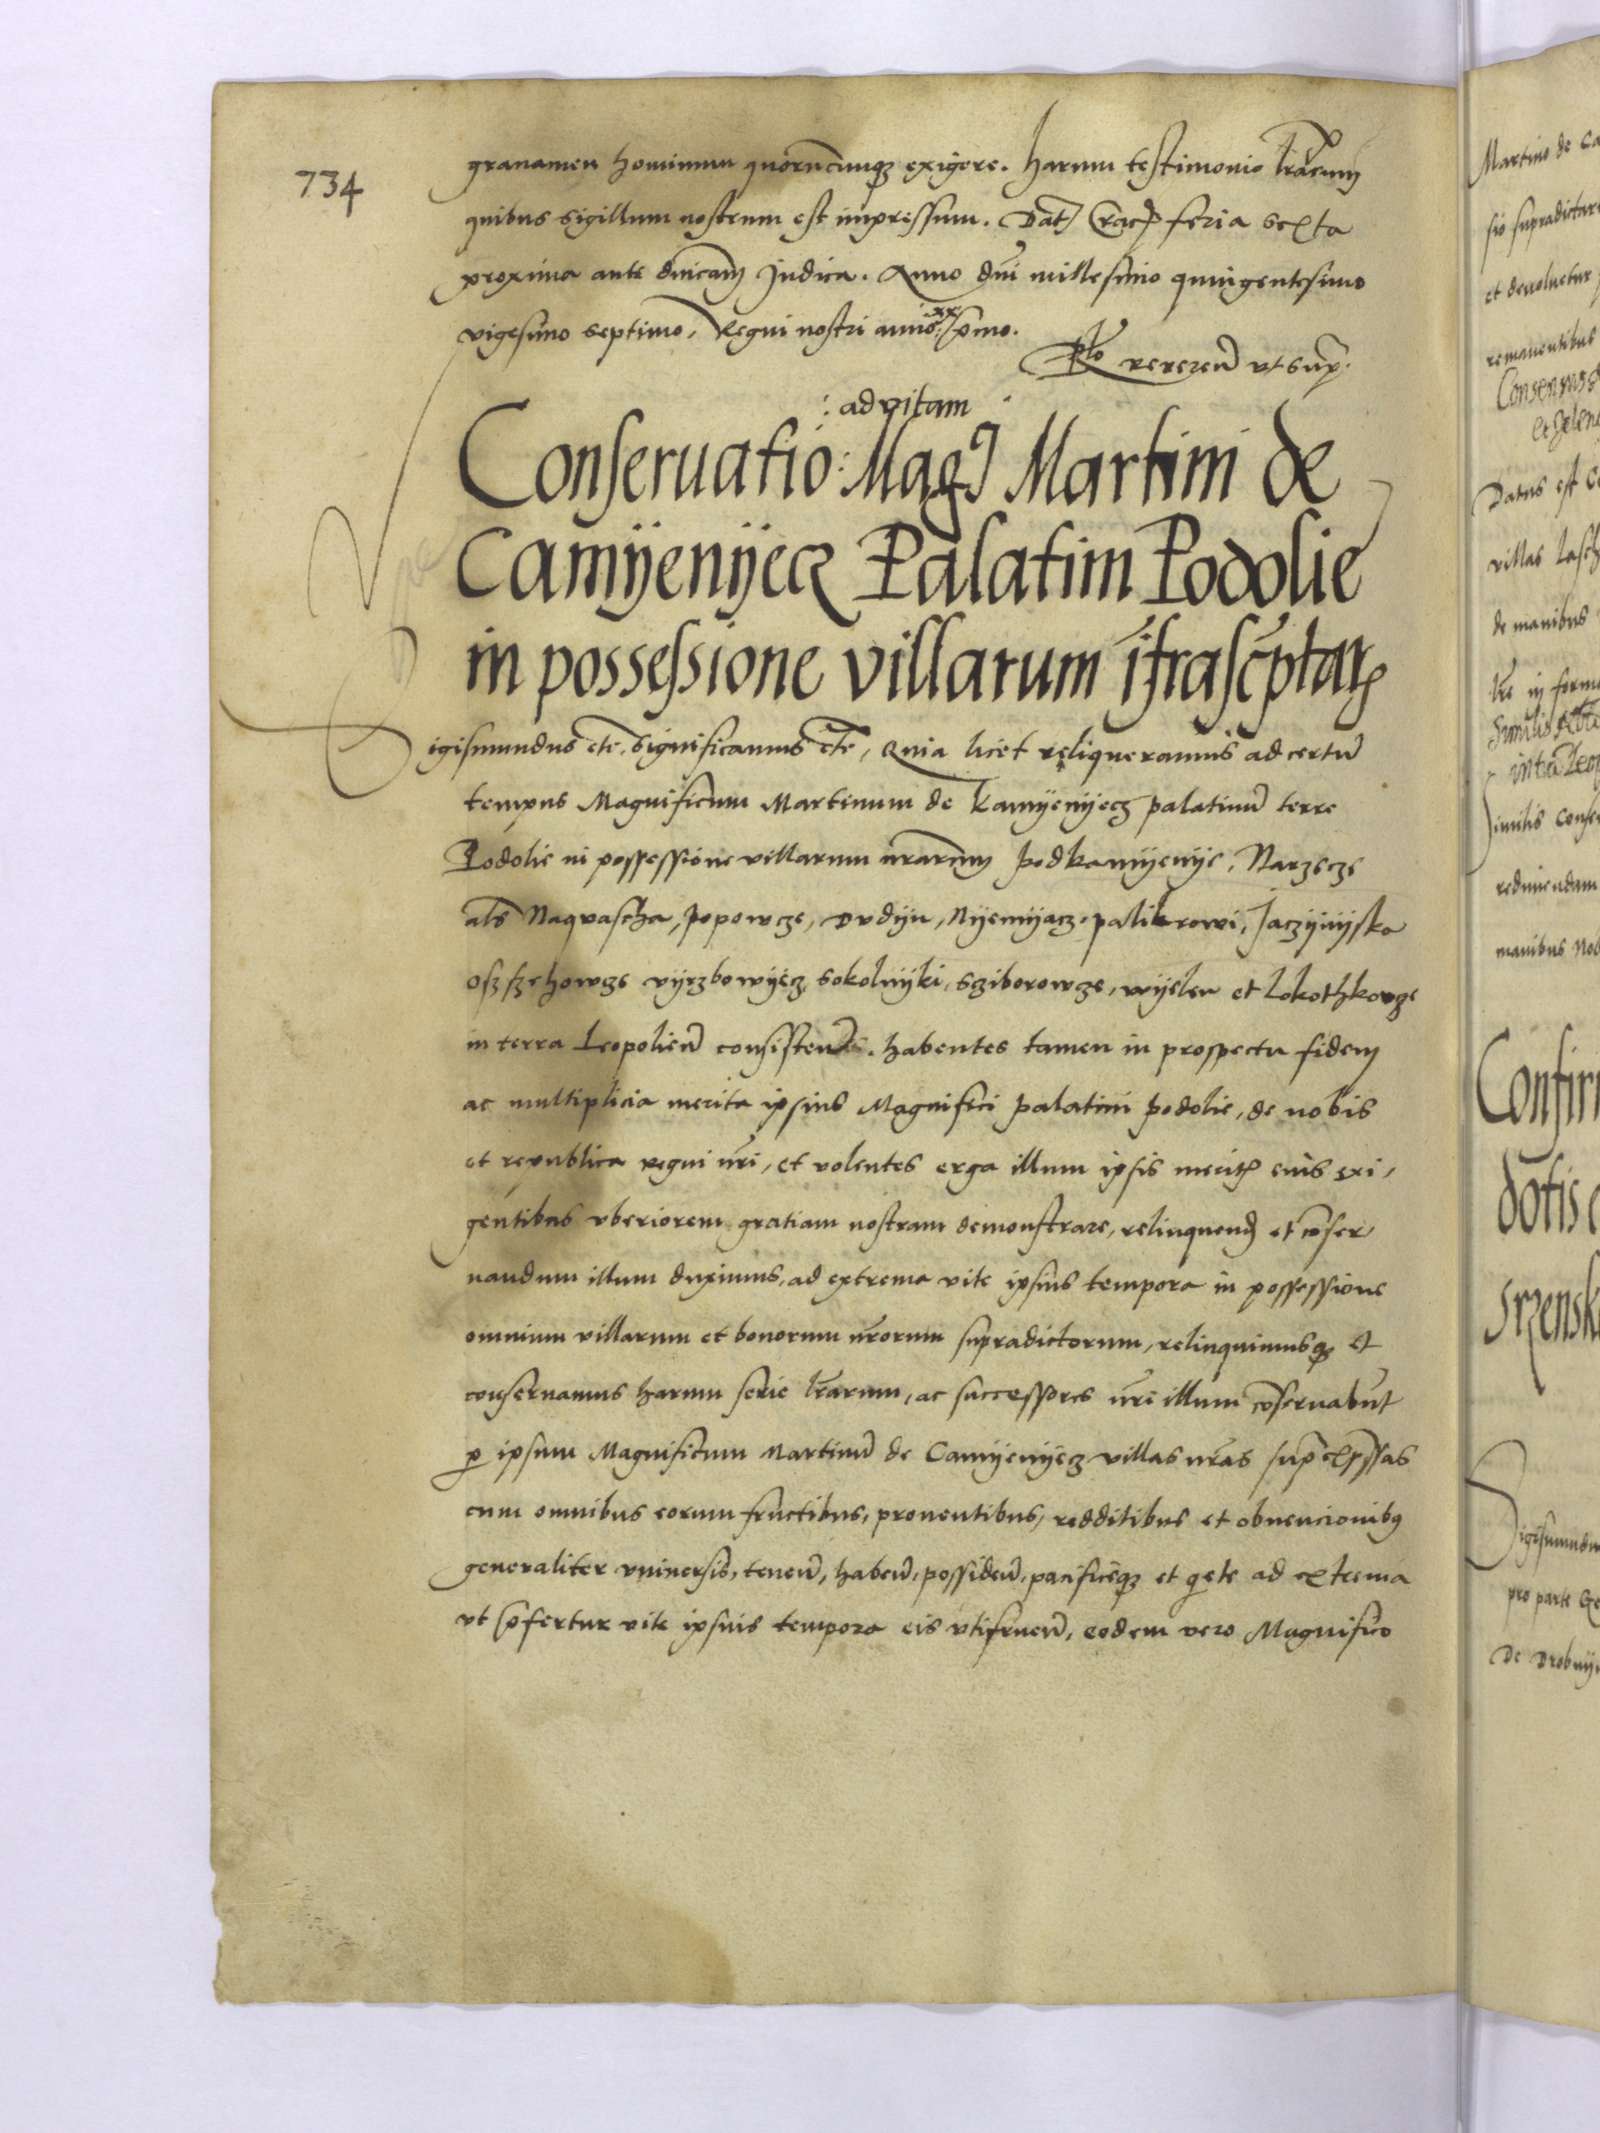 734
grauamen hominum quorūcumq3 exigere. Harum testimonio lrārum
quibus sigillum nostrum est impressum. Dat Crac feria sexta
proxima ante dnīcam Judica. Anno dnī millesimo quingentesimo
vigesimo septimo, Regni nostri anno xx pmo.
Rlo reverend vt sup.
: ad vitam :
Conseruatio: Mag Martini de
Camÿenÿecz Palatini Podolie
in possessione villarum īfrasc̄ptar
Sigismundus etc. significamus etc, Quia licet reliqueramus ad certū
tempus Magnificum Martinum de Kamÿenÿecz palatinū terre
Podolie in possessione villarum nrārum Podkamÿenÿe, Narzecze
als Naquascha, Popowcze, Dudÿn, Nÿemÿacz, palikrowi, Jaczÿnÿska
oszszchowcze vÿrzbowÿecz, sokolnÿki, Scziborowcze, wÿelen et Lokothkowcze
in terra Leopolien consisten. habentes tamen in prospectu fidem
ac multiplicia merita ipsius Magnifici Palatini Podolie, de nobis
et republica regni nrī, et volentes erga illum ipsis merit eius exi,
gentibus vberiorem gratiam nostram demonstrare, relinquend et cōser,
uandum illum duximus, ad extrema vite ipsius tempora in possessione
omnium villarum et bonorum nrōrum supradictorum, relinquimusq3 et
conseruamus harum serie lrārum, ac successores nrī illum cōseruabūt
p ipsum Magnificum Martinū de Camÿenÿecz villas nrās sup expssas
cum omnibus eorum fructibus, prouentibus, redditibus et obuencionib9
generaliter vniuersis, tenen, haben, possiden, pacificeq3 et qete ad extrema
vt pfertur vite ipsius tempora eis vtifruen, eodem vero Magnifico
Martino de Ca
sio supradictar
et deuoluetur
remanentibus
Consensus
Datus est C
villas Lasch
de manibus
lrē in forma
Similis
Similis conse
redimendam
manibus Nob
Confir
dotis
Srzensk
Sigismundu
pro parte Ge
De Drobnÿ